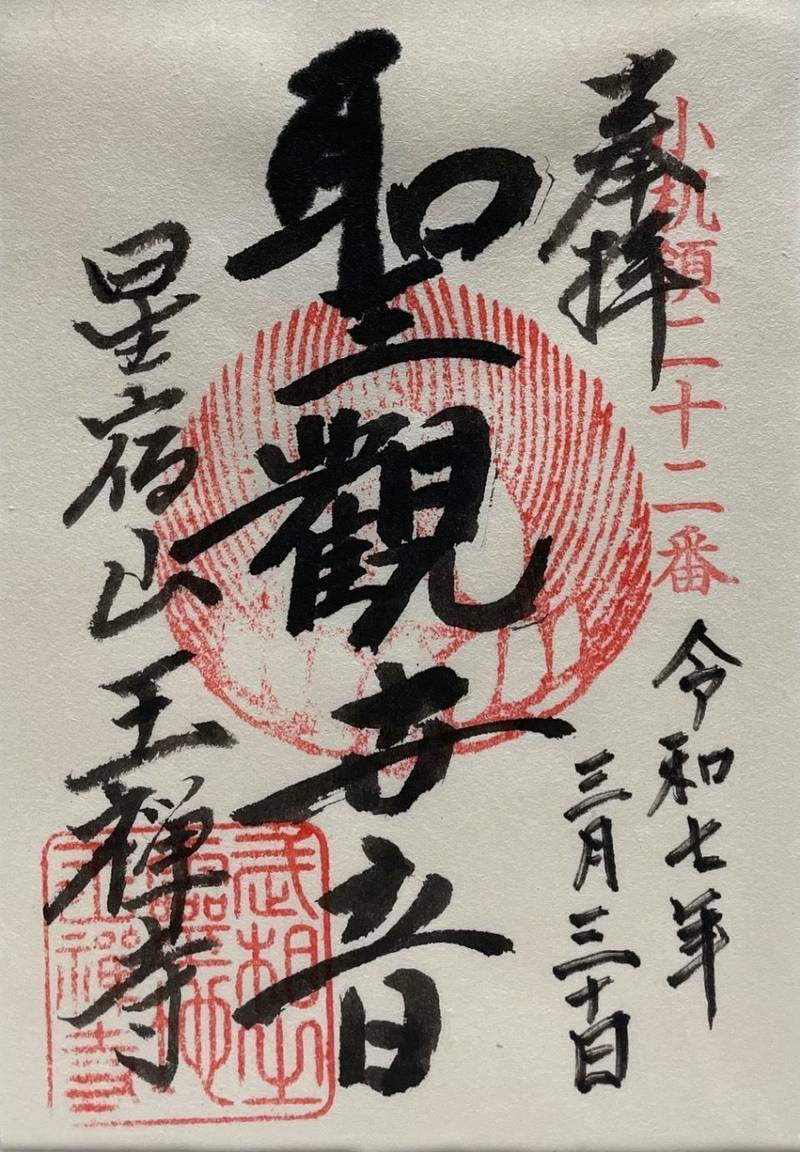 小机領二十二番
奉拝
令和七年
三月三十日
聖觀世音
星宿山王禅寺
王禪寺